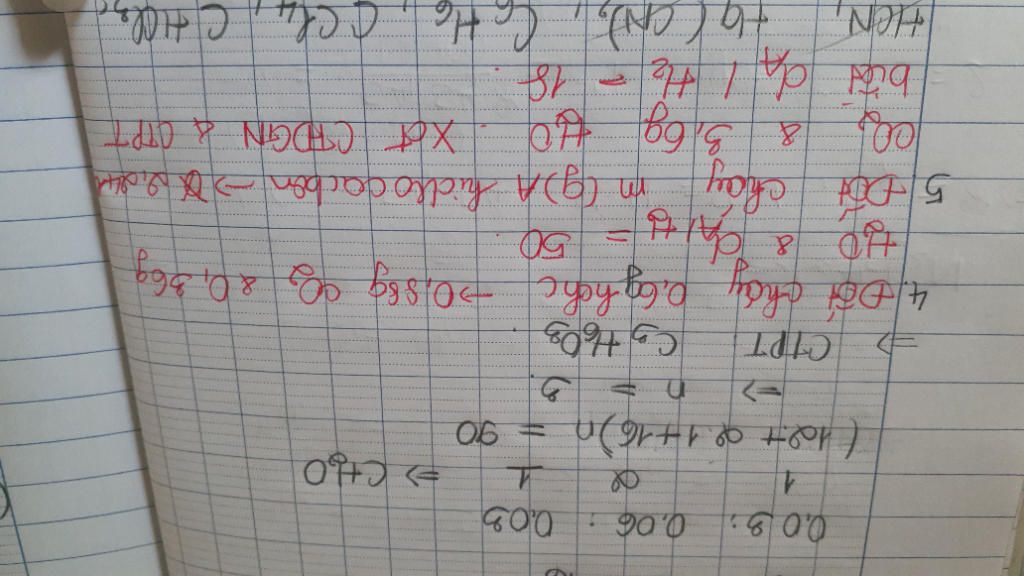 0,03 : 0,06 : 0,03
1 2 1 => CH2O
(12+2.1+16)n = 90
=> n = 3
=> CTPT C3H6O3
4. Đốt cháy 0,6g hchc → 0,88g CO2 & 0,36g
H2O & dA/H2 = 50
5 Đốt cháy m(g)A hidrocacbon →
CO2 & 3,6g H2O . Xđ CTĐGN & CTPT
biết dA / H2 = 18 .
HCN, Hg(CN)2, C6H6, CCl4, CHCl3,